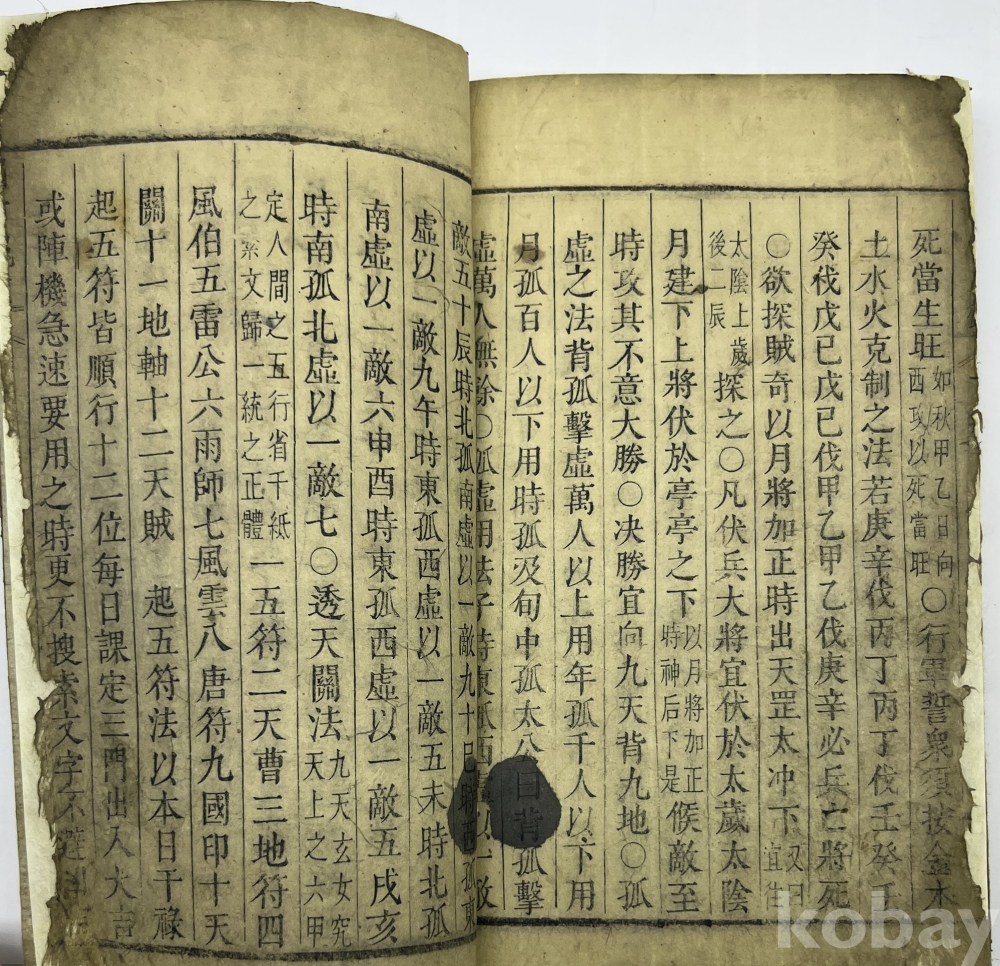 死當生旺如秋甲乙日向酉攻以死當旺〇行軍誓衆須按金木
土水火克制之法若庚辛伐丙丁丙丁伐壬癸壬
癸伐戊己戊己伐甲乙甲乙伐庚辛必兵亡將死
〇欲探賊奇以月將加正時出天罡太冲下
太陰上歲後二辰探之〇凡伏兵大將宜伏於太歲太陰
月建下上將伏於亭亭之下以月將加正時神后下是候敵至
時攻其不意大勝〇决勝宜向九天背九地〇孤
虛之法背孤擊虛萬人以上用年孤千人以下用
月孤百人以下用時孤及旬中孤太公曰背孤擊
虛萬人無餘〇孤虛用法子時東孤西虛以一敵
敵五十辰時北孤南虛以一敵九十巳時西孤東
虛以一敵九午時東孤西虛以一敵五未時北孤
南虛以一敵六申酉時東孤西虛以一敵五戌亥
時南孤北虛以一敵七〇透天關法九天玄女究天上之六甲
定人間之五行省千紙之繁文歸一統之正體一五符二天曹三地符四
風伯五雷公六雨師七風雲八唐符九國印十天
關十一地軸十二天賊 起五符法以本日干祿
起五符皆順行十二位每日課定三門出入大吉
或陣機急速要用之時更不搜索文字不
kobay